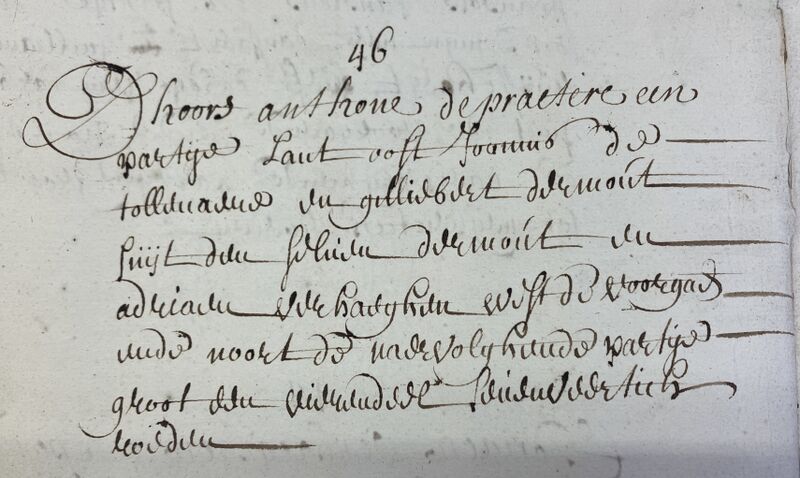 46
D'hoors anthone de praetere een
partije Lant oost Joonnis de
tollenaere en gilliebert dermoút
suijt den selven dermoút en
adriaen verhaeghen west de voorgaen
ende noort de naervolghende partije
groot een vierendeel sevenveertich
roeden